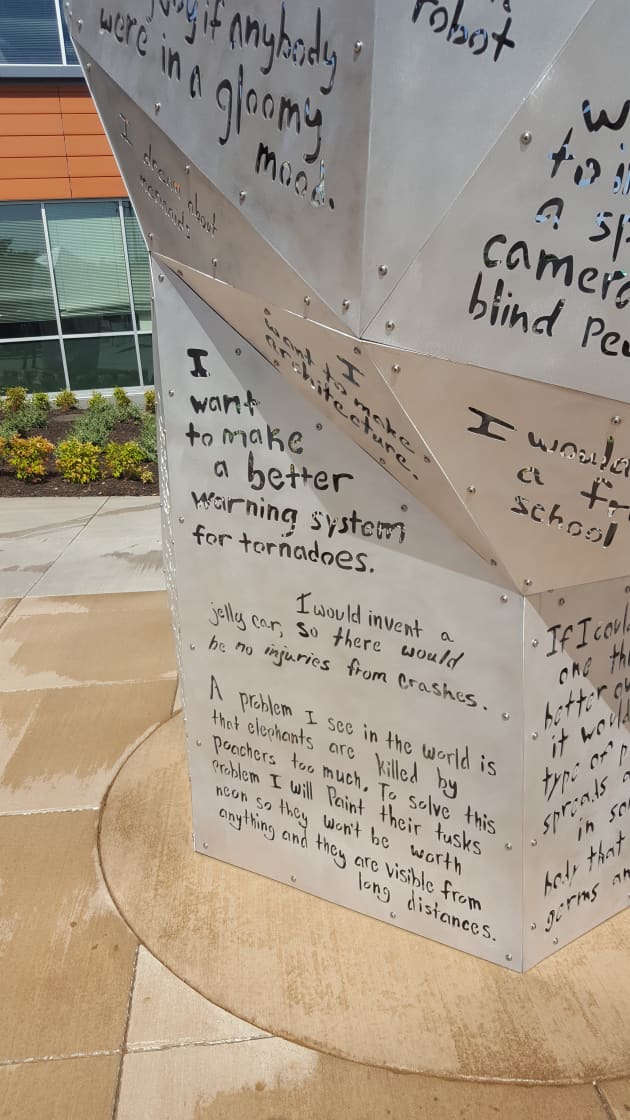 if anybody
were in a
gloomy
mood.
robot
I dream about
mermaids
to
a
camera
blind
I
want to make
architecture.
I
want
to make
a better
warning system
for tornadoes.
I would
a
school
I would invent a
jelly car, so there would
be no injuries from crashes.
A problem I see in the world is
that elephants are killed by
poachers too much. To solve this
problem I will Paint their tusks
neon so they won't be worth
anything and they are visible from
long distances.
If I could
one
better
it would
type of
spreads
in
body that
germs